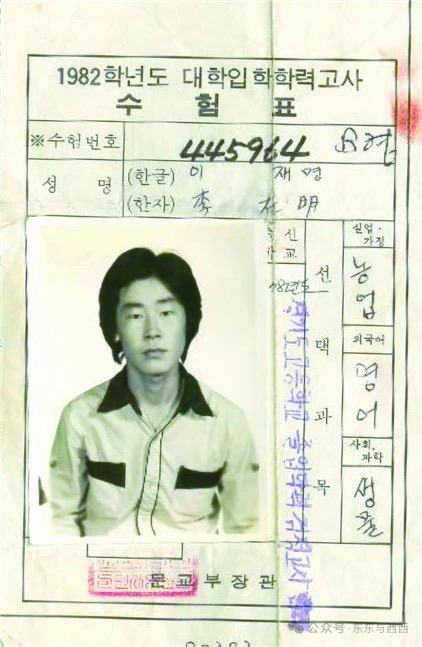 1982학년도 대학입학학력고사
수 험 표
※수험번호 445964
성 명 (한글) 이 재 명
(한자) 李 在 明
선택과목
실업·가정
농업
외국어
영어
사회,과학
생물
82년도
경기도 고등학교 졸업학력 검정고시
문교부장관
公众号·东东与西西